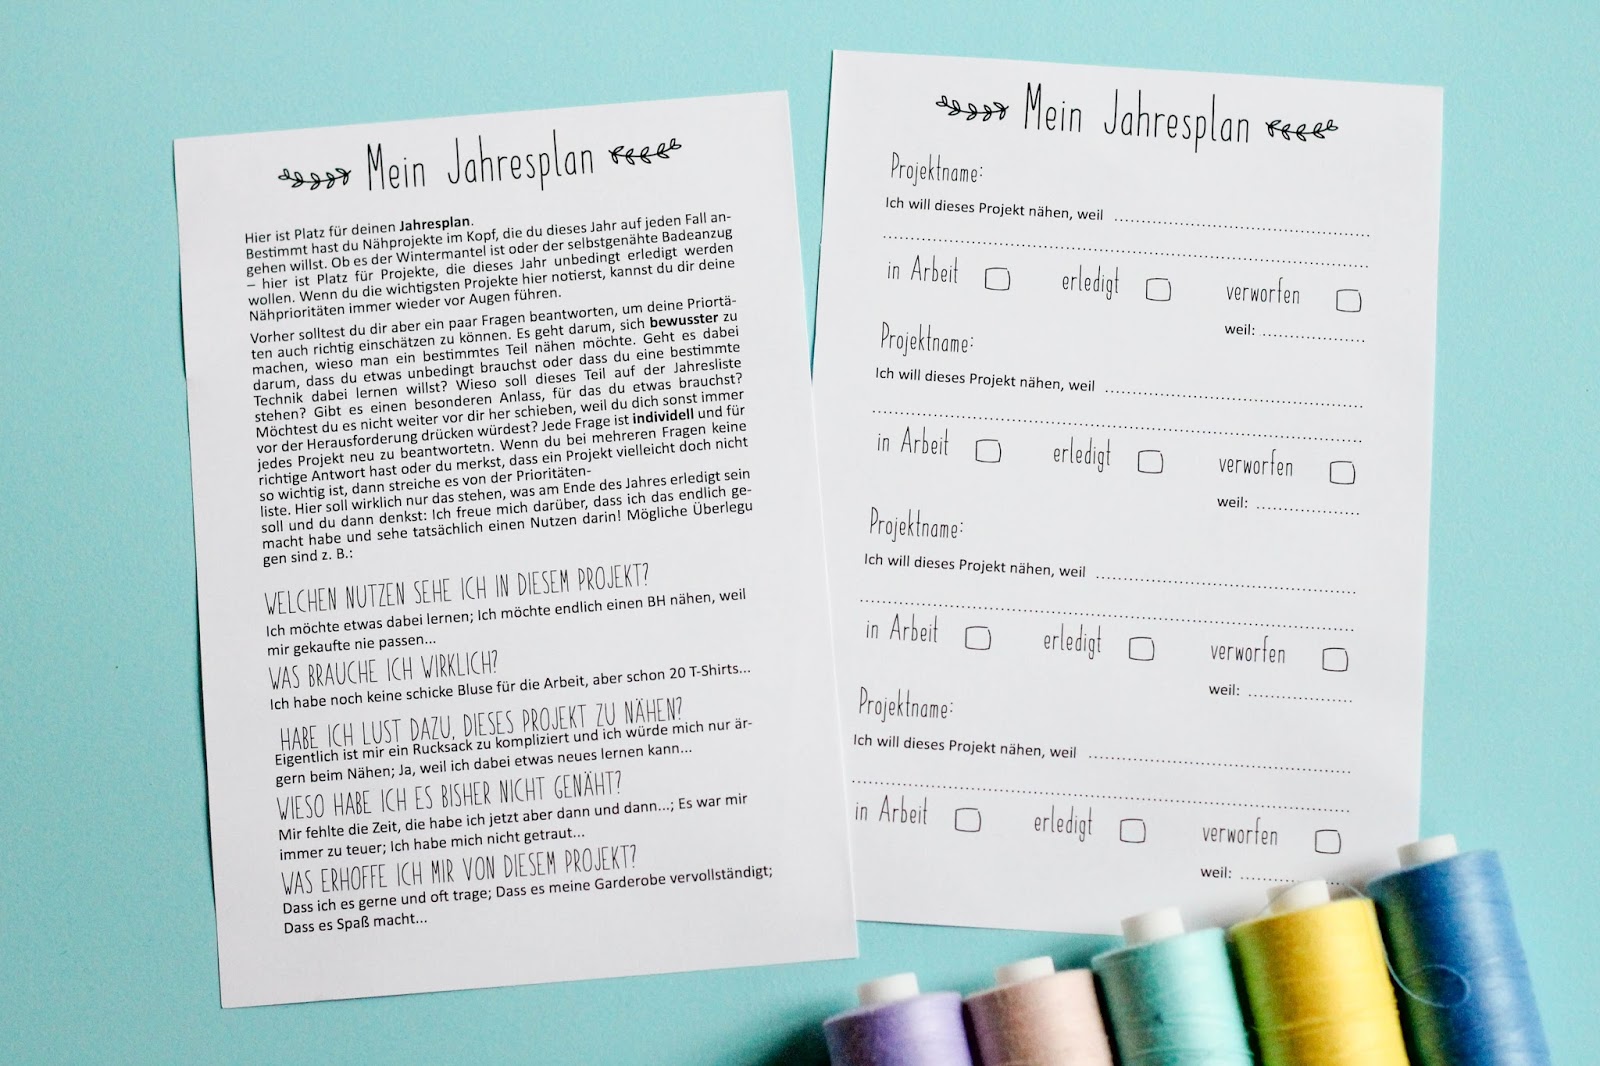 Mein Jahresplan
Hier ist Platz für deinen Jahresplan.
Bestimmt hast du Nähprojekte im Kopf, die du dieses Jahr auf jeden Fall an-
gehen willst. Ob es der Wintermantel ist oder der selbstgenähte Badeanzug
– hier ist Platz für Projekte, die dieses Jahr unbedingt erledigt werden
wollen. Wenn du die wichtigsten Projekte hier notierst, kannst du dir deine
Nähprioritäten immer wieder vor Augen führen.
Vorher solltest du dir aber ein paar Fragen beantworten, um deine Priortä-
ten auch richtig einschätzen zu können. Es geht darum, sich bewusster zu
machen, wieso man ein bestimmtes Teil nähen möchte. Geht es dabei
darum, dass du etwas unbedingt brauchst oder dass du eine bestimmte
Technik dabei lernen willst? Wieso soll dieses Teil auf der Jahresliste
stehen? Gibt es einen besonderen Anlass, für das du etwas brauchst?
Möchtest du es nicht weiter vor dir her schieben, weil du dich sonst immer
vor der Herausforderung drücken würdest? Jede Frage ist individell und für
jedes Projekt neu zu beantwortetn. Wenn du bei mehreren Fragen keine
richtige Antwort hast oder du merkst, dass ein Projekt vielleicht doch nicht
so wichtig ist, dann streiche es von der Prioritäten-
liste. Hier soll wirklich nur das stehen, was am Ende des Jahres erledigt sein
soll und du dann denkst: Ich freue mich darüber, dass ich das endlich ge-
macht habe und sehe tatsächlich einen Nutzen darin! Mögliche Überlegu
gen sind z. B.:
WELCHEN NUTZEN SEHE ICH IN DIESEM PROJEKT?
Ich möchte etwas dabei lernen; Ich möchte endlich einen BH nähen, weil
mir gekaufte nie passen...
WAS BRAUCHE ICH WIRKLICH?
Ich habe noch keine schicke Bluse für die Arbeit, aber schon 20 T-Shirts...
HABE ICH LUST DAZU, DIESES PROJEKT ZU NÄHEN?
Eigentlich ist mir ein Rucksack zu kompliziert und ich würde mich nur är-
gern beim Nähen; Ja, weil ich dabei etwas neues lernen kann...
WIESO HABE ICH ES BISHER NICHT GENÄHT?
Mir fehlte die Zeit, die habe ich jetzt aber dann und dann...; Es war mir
immer zu teuer; Ich habe mich nicht getraut...
WAS ERHOFFE ICH MIR VON DIESEM PROJEKT?
Dass ich es gerne und oft trage; Dass es meine Garderobe vervollständigt;
Dass es Spaß macht...
Mein Jahresplan
Projektname:
Ich will dieses Projekt nähen, weil
in Arbeit erledigt verworfen
weil:
Projektname:
Ich will dieses Projekt nähen, weil
in Arbeit erledigt verworfen
weil:
Projektname:
Ich will dieses Projekt nähen, weil
in Arbeit erledigt verworfen
weil:
Projektname:
Ich will dieses Projekt nähen, weil
in Arbeit erledigt verworfen
weil: